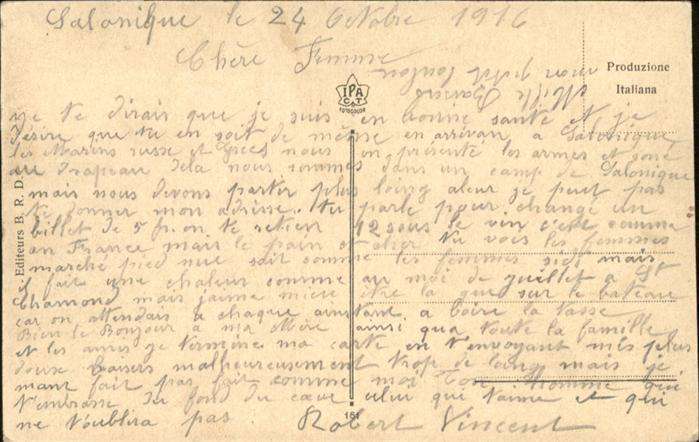 Salonique le 24 Octobre 1916
Chère Femme
mon petit loulou
Produzione
Italiana
IPA CT
AUTOCOLOR
Editeurs B. R. D.
je te dirait que je suis en bonne santé et je
désire que tu en soit de même en arrivan a Salonique
les Marins russe et Grecs nous on présenté les armes et joué
au Drapeau dela nous sommes dans un camp de Salonique
mais nous devons partir plus loing aleur je peut pas
te donner mon adresse. tu parle pour changé un
billet de 5 fr. on te retien 12 sous le vin c'est comme
en France mais le pain et cher tu vois les femmes
marché pied nue soit comme les femmes sidi mais
il fait une chaleur comme au moi de juillet a St
Chamond mais jaime mieu être la que sur le bateau
car on attendais a chaque instant a boire la tasse
Bien le Bonjour a ma Mère ainsi qua toute la famille
et les amis je termine ma carte en t'envoyant mes plus
doux baisers malheureusement trop de loing mais je
mant fait pas fait comme moi Ton Homme qui
t'embrasse du fond du cœur celui que t'aime et qui
ne toublira pas Robert Vincent
151